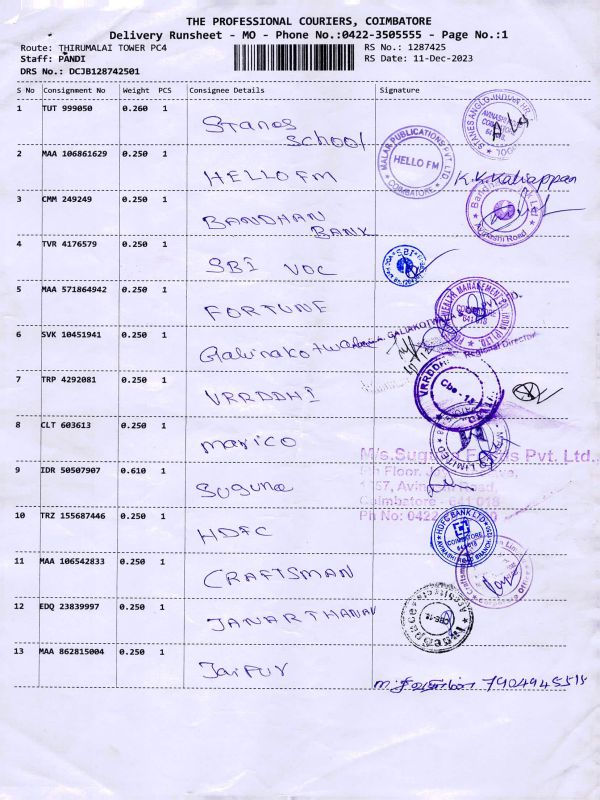 THE PROFESSIONAL COURIERS, COIMBATORE
Delivery Runsheet - MO - Phone No.:0422-3505555 - Page No.:1
Route: THIRUMALAI TOWER PC4 RS No.: 1287425
Staff: PANDI RS Date: 11-Dec-2023
DRS No.: DCJB128742501
S No Consignment No Weight PCS Consignee Details Signature
1 TUT 999050 0.260 1 Stanes School
2 MAA 106861629 0.250 1 HELLO FM
MALAR PUBLICATIONS PVT. LTD
HELLO FM
COIMBATORE
K.V.Kaliappan
3 CMM 249249 0.250 1 BANDHAN BANK
Avinashi Road
4 TVR 4176579 0.250 1 SBI VOC
SBI
5 MAA 571864942 0.250 1 FORTUNE
COIMBATORE
641 018
6 SVK 10451941 0.250 1
Regional Director
7 TRP 4292081 0.250 1 VRRDDHI
VRRDDHI
Cbe - 18
8 CLT 603613 0.250 1 Marico
LIMITED
9 IDR 50507907 0.610 1 Suguna
M/s.Suguna Foods Pvt. Ltd.
Coimbatore - 641 018
10 TRZ 155687446 0.250 1 HDFC
HDFC BANK LTD
COIMBATORE
641-018
11 MAA 106542833 0.250 1 CRAFTSMAN
12 EDQ 23839997 0.250 1 JANARTHANAN
CBE-18
13 MAA 862815004 0.250 1 Jaipur